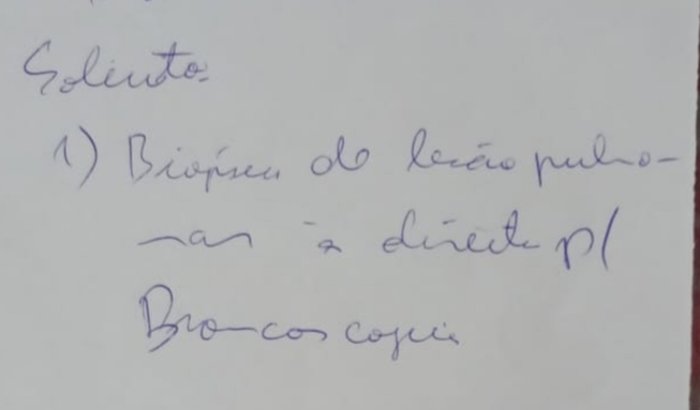 Solicito
1) Biópsia de lesão pulmo-
nar à direita p/
Broncoscopia